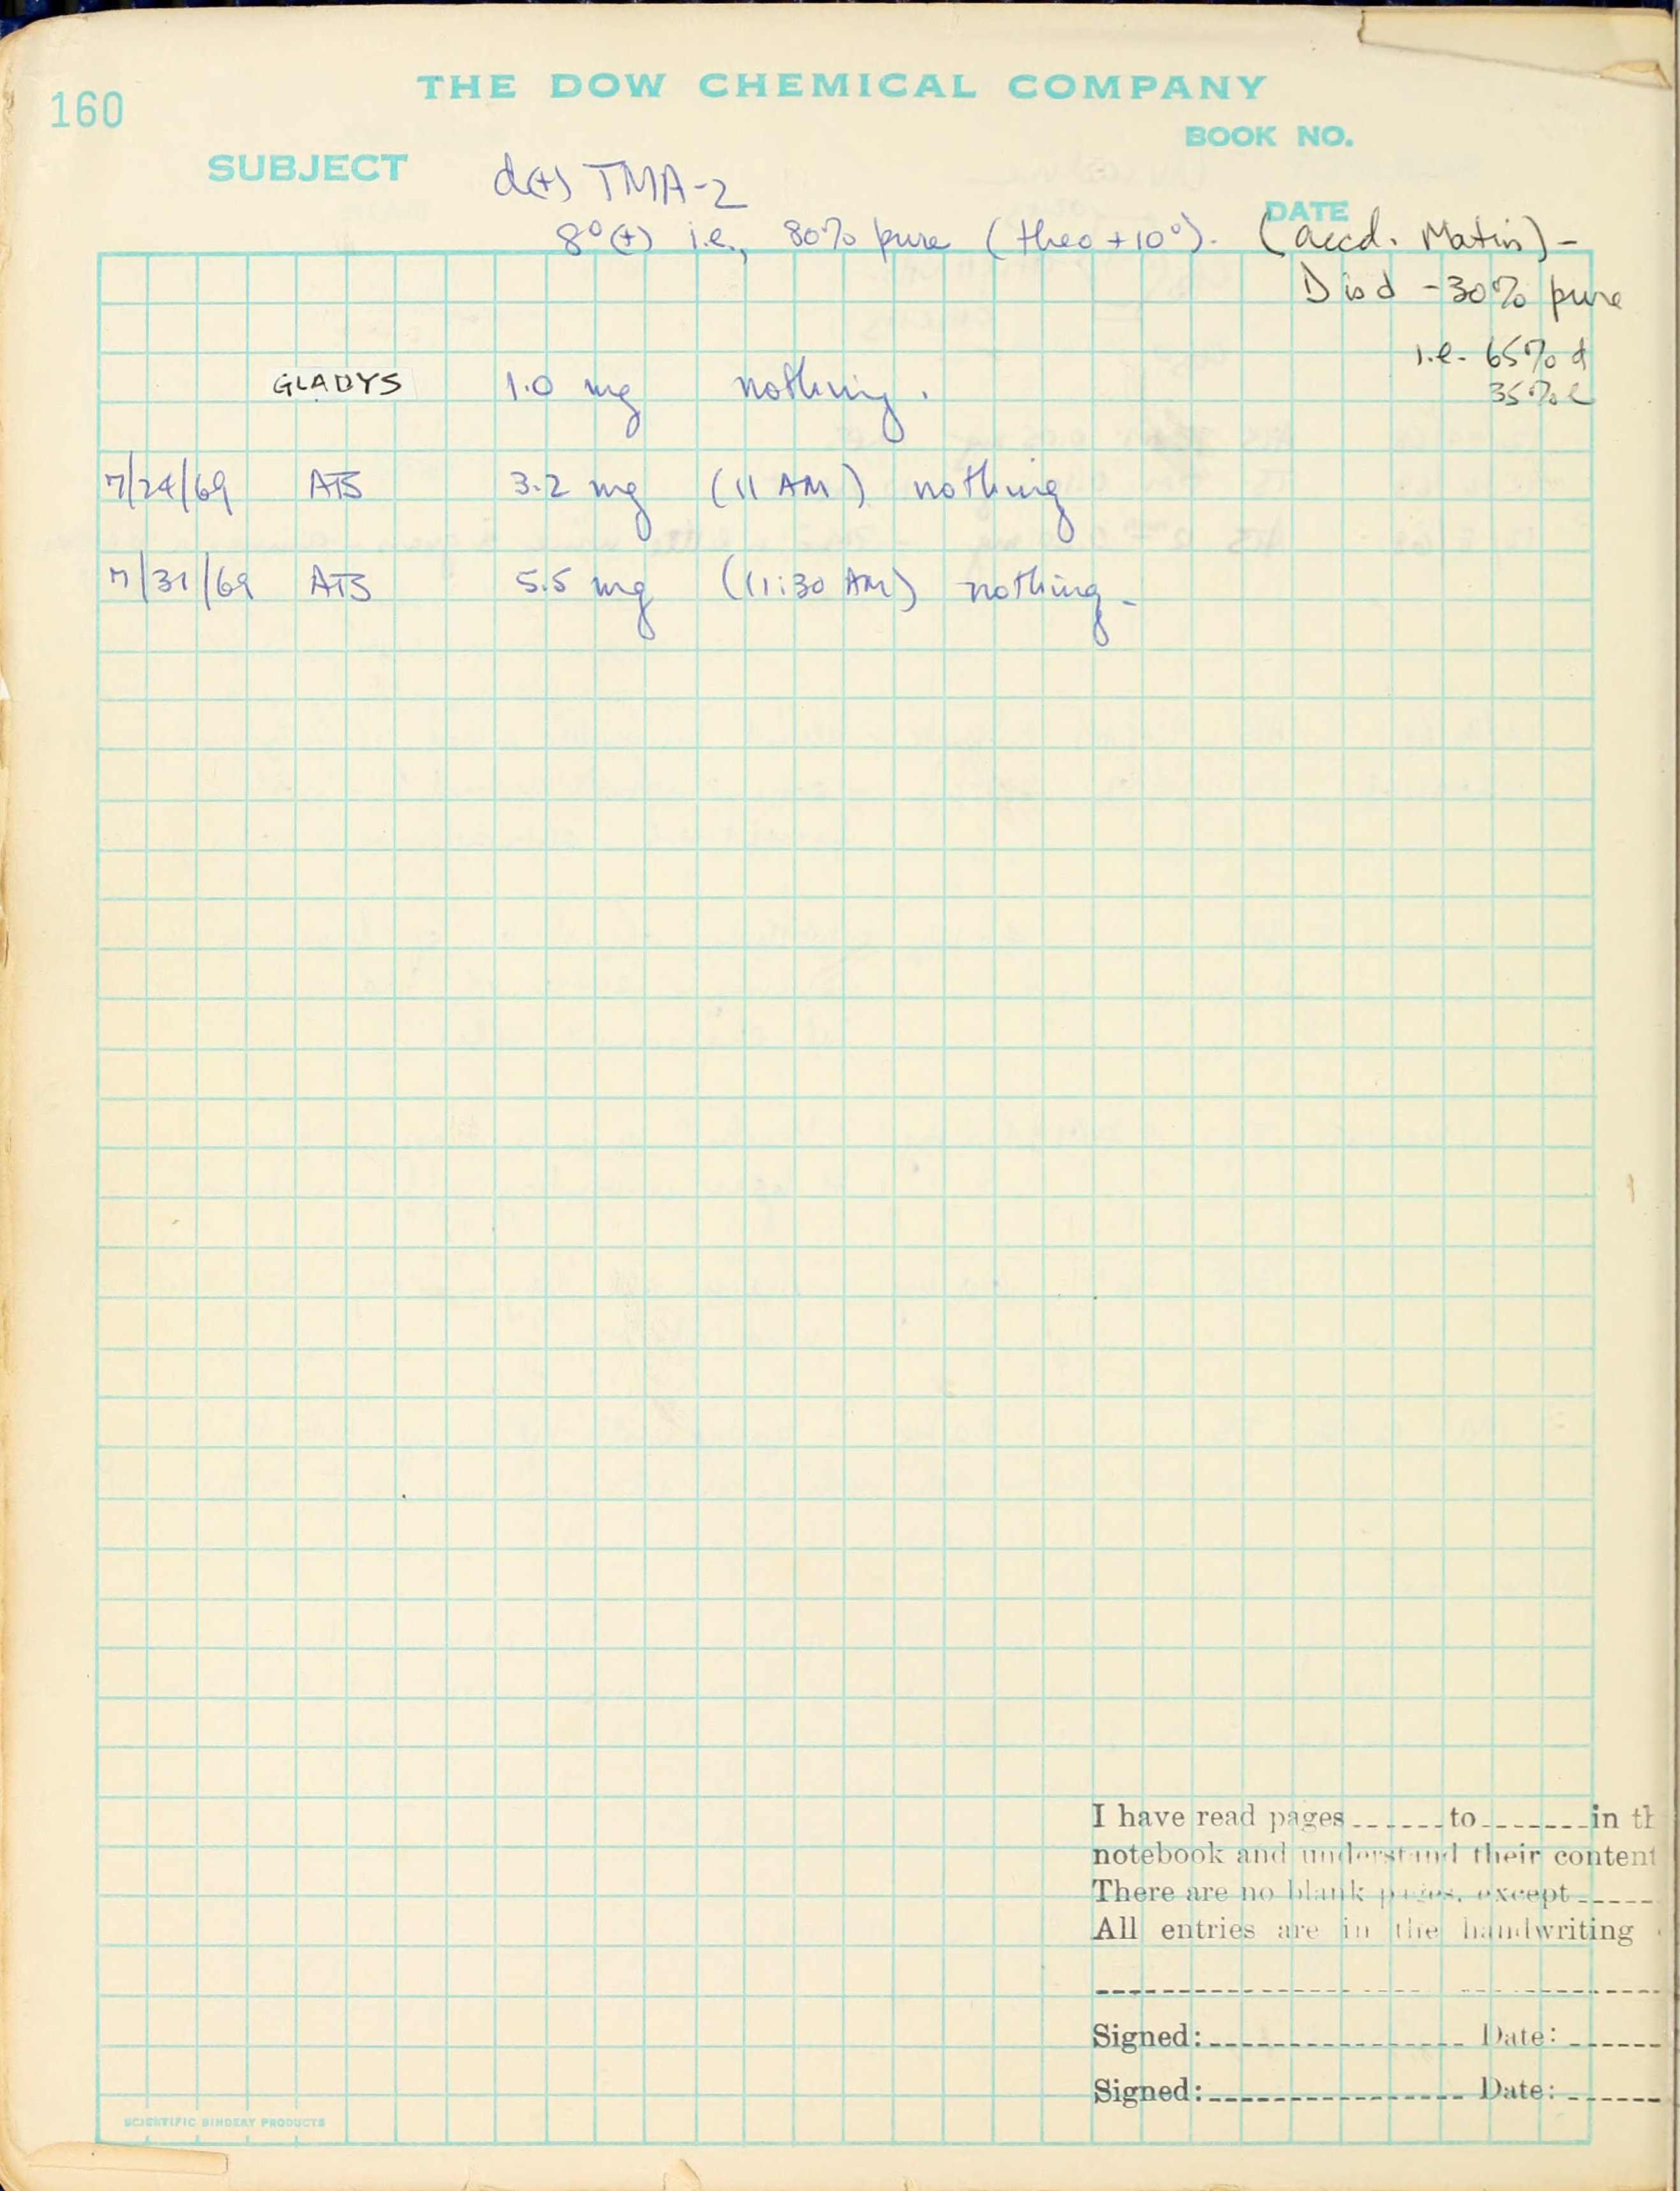 THE DOW CHEMICAL COMPANY
160
BOOK NO.
SUBJECT d(+) TMA-2
DATE
8°(+) i.e., 80% pure (theo +10°). (accd. Matin) -
D is d -30% pure
i.e. 65% d
35% l
GLADYS 1.0 mg nothing.
7/24/69 ATS 3.2 mg (11 AM) nothing
7/31/69 ATS 5.5 mg (11:30 AM) nothing -
I have read pages ------ to ------- in th
notebook and understand their content
There are no blank pages, except -----
All entries are in the handwriting
Signed: Date:
Signed: Date:
SCIENTIFIC BINDERY PRODUCTS